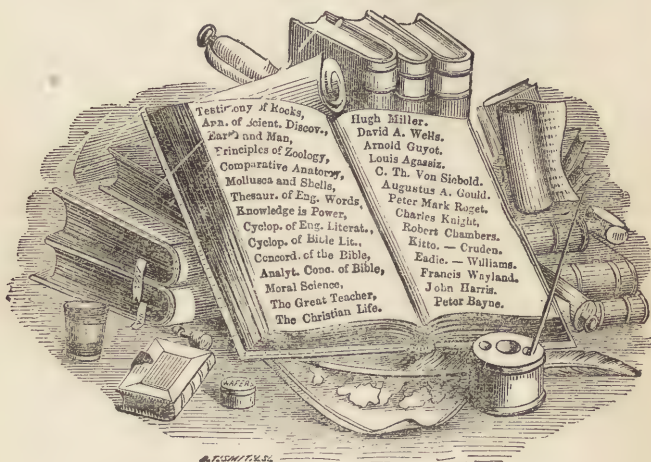 Testimony of Rocks,
Ann. of Scient. Discov.,
Earth and Man,
Principles of Zoology,
Comparative Anatomy,
Mollusca and Shells,
Thesaur. of Eng. Words,
Knowledge is Power,
Cyclop. of Eng. Literat.,
Cyclop. of Bible Lit.,
Concord. of the Bible,
Analyt. Conc. of Bible,
Moral Science,
The Great Teacher,
The Christian Life.
Hugh Miller.
David A. Wells.
Arnold Guyot.
Louis Agassiz.
C. Th. Von Siebold.
Augustus A. Gould.
Peter Mark Roget.
Charles Knight,
Robert Chambers.
Kitto. — Cruden.
Eadie. — Williams.
Francis Wayland.
John Harris.
Peter Bayne.
WAFER